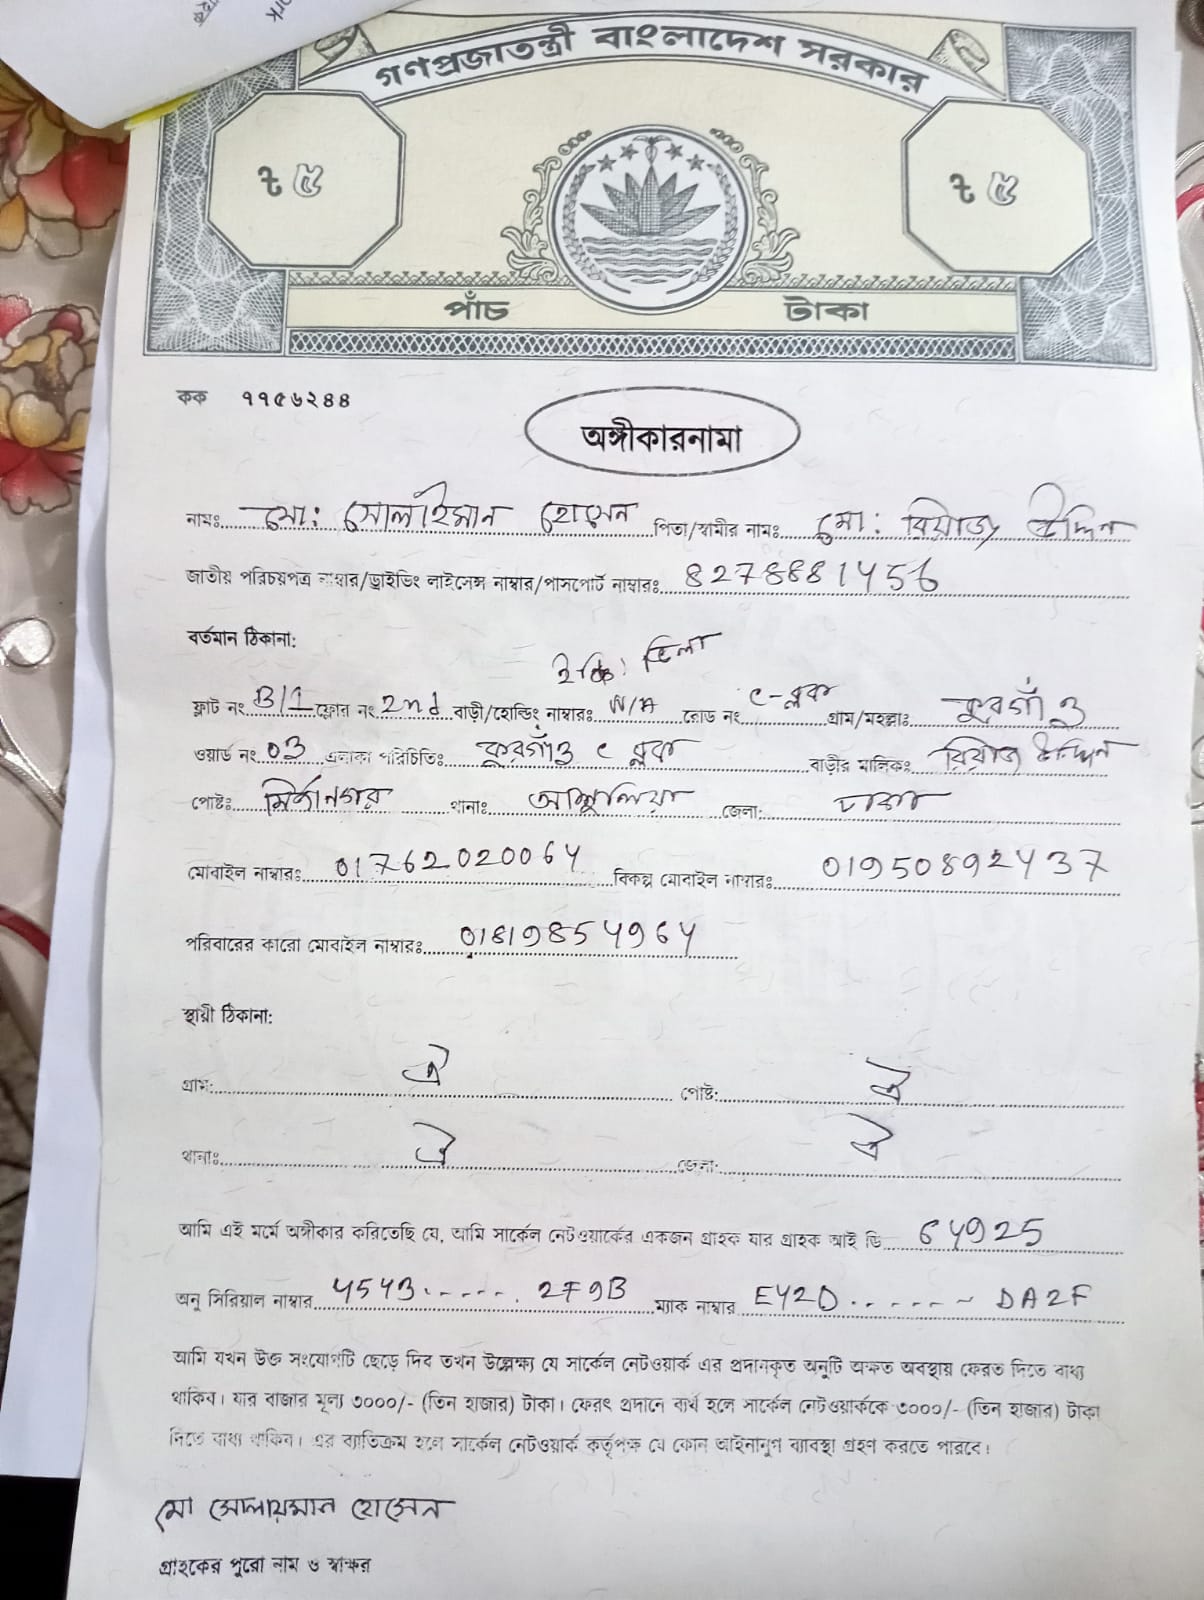 গণপ্রজাতন্ত্রী বাংলাদেশ সরকার
৳ ৫ ৳ ৫
পাঁচ টাকা
কক ৭৭৫৬২৪৪
অঙ্গীকারনামা
নামঃ মো: সোলাইমান হোসেন পিতা/স্বামীর নামঃ মো: রিয়াজ উদ্দিন
জাতীয় পরিচয়পত্র নাম্বার/ড্রাইভিং লাইসেন্স নাম্বার/পাসপোর্ট নাম্বারঃ 8278881456
বর্তমান ঠিকানা:
ভিলা
ফ্লাট নং B/1 ফ্লোর নং 2nd বাড়ী/হোল্ডিং নাম্বারঃ N/A রোড নং c-ব্লক গ্রাম/মহল্লাঃ কুরগাঁও
ওয়ার্ড নং 03 এলাকা পরিচিতিঃ কুরগাঁও c ব্লক বাড়ীর মালিকঃ রিয়াজ উদ্দিন
পোষ্টঃ মির্জানগর থানাঃ আশুলিয়া জেলা: ঢাকা
মোবাইল নাম্বারঃ 01762020064 বিকল্প মোবাইল নাম্বারঃ 01950892437
পরিবারের কারো মোবাইল নাম্বারঃ 01819854964
স্থায়ী ঠিকানা:
গ্রাম: ঐ পোষ্ট: ঐ
থানাঃ ঐ জেলা: ঐ
আমি এই মর্মে অঙ্গীকার করিতেছি যে, আমি সার্কেল নেটওয়ার্কের একজন গ্রাহক যার গ্রাহক আই ডি 64925
অনু সিরিয়াল নাম্বার 4543 ...... 2F9B ম্যাক নাম্বার E42D ....... DA2F
আমি যখন উক্ত সংযোগটি ছেড়ে দিব তখন উল্লেক্ষ্য যে সার্কেল নেটওয়ার্ক এর প্রদানকৃত অনুটি অক্ষত অবস্থায় ফেরত দিতে বাধ্য
থাকিব। যার বাজার মূল্য ৩০০০/- (তিন হাজার) টাকা। ফেরৎ প্রদানে ব্যর্থ হলে সার্কেল নেটওয়ার্ককে ৩০০০/- (তিন হাজার) টাকা
দিতে বাধ্য থাকিব। এর ব্যতিক্রম হলে সার্কেল নেটওয়ার্ক কর্তৃপক্ষ যে কোন আইনানুগ ব্যাবস্থা গ্রহণ করতে পারবে।
মো সোলায়মান হোসেন
গ্রাহকের পুরো নাম ও স্বাক্ষর